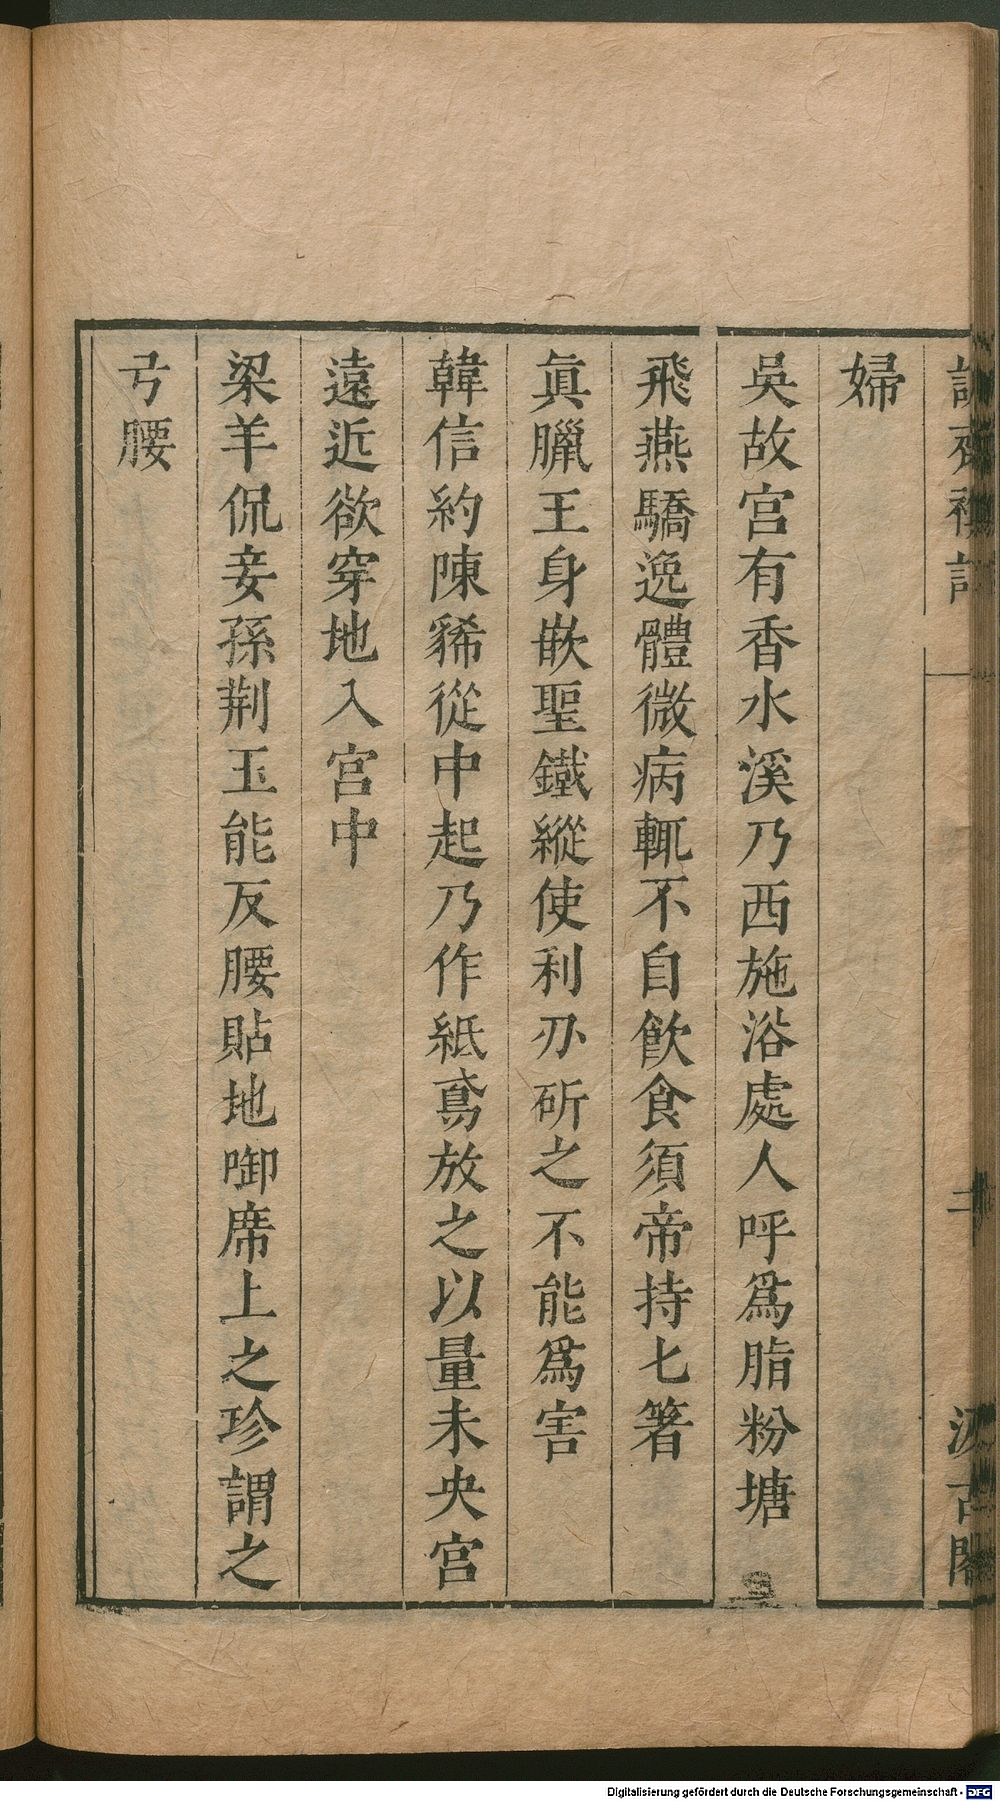 婦
吳故宮有香水溪乃西施浴處人呼爲脂粉塘
飛燕驕逸體微病輒不自飮食須帝持匕箸
眞臘王身嵌聖鐵縱使利刅斫之不能爲害
韓信約陳豨從中起乃作紙鳶放之以量未央宮
遠近欲穿地入宮中
梁羊侃妾孫荆玉能反腰貼地啣席上之珍謂之
弓腰
二
汲古閣
Digitalisierung gefördert durch die Deutsche Forschungsgemeinschaft - DFG